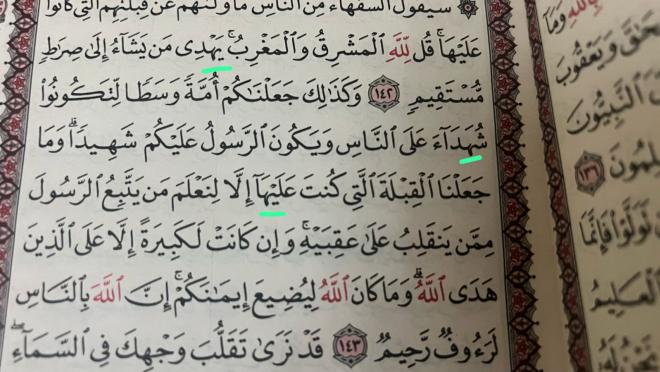 سَيَقُولُ السُّفَهَاءُ مِنَ النَّاسِ مَا وَلَّىٰهُمْ عَن قِبْلَتِهِمُ الَّتِي كَانُوا
عَلَيْهَا ۚ قُل لِّلَّهِ الْمَشْرِقُ وَالْمَغْرِبُ ۚ يَهْدِي مَن يَشَاءُ إِلَىٰ صِرَٰطٍ
مُّسْتَقِيمٍ ١٤٢ وَكَذَٰلِكَ جَعَلْنَٰكُمْ أُمَّةً وَسَطًا لِّتَكُونُوا
شُهَدَآءَ عَلَى النَّاسِ وَيَكُونَ الرَّسُولُ عَلَيْكُمْ شَهِيدًا ۗ وَمَا
جَعَلْنَا الْقِبْلَةَ الَّتِي كُنتَ عَلَيْهَآ إِلَّا لِنَعْلَمَ مَن يَتَّبِعُ الرَّسُولَ
مِمَّن يَنقَلِبُ عَلَىٰ عَقِبَيْهِ ۚ وَإِن كَانَتْ لَكَبِيرَةً إِلَّا عَلَى الَّذِينَ
هَدَى اللَّهُ ۗ وَمَا كَانَ اللَّهُ لِيُضِيعَ إِيمَٰنَكُمْ ۚ إِنَّ اللَّهَ بِالنَّاسِ
لَرَءُوفٌ رَّحِيمٌ ١٤٣ قَدْ نَرَىٰ تَقَلُّبَ وَجْهِكَ فِي السَّمَآءِ ۖ
بِاللَّهِ وَمَا
وَيَعْقُوبَ
النَّبِيُّونَ
١٣٦
فَإِنَّمَا
الْعَلِيمُ